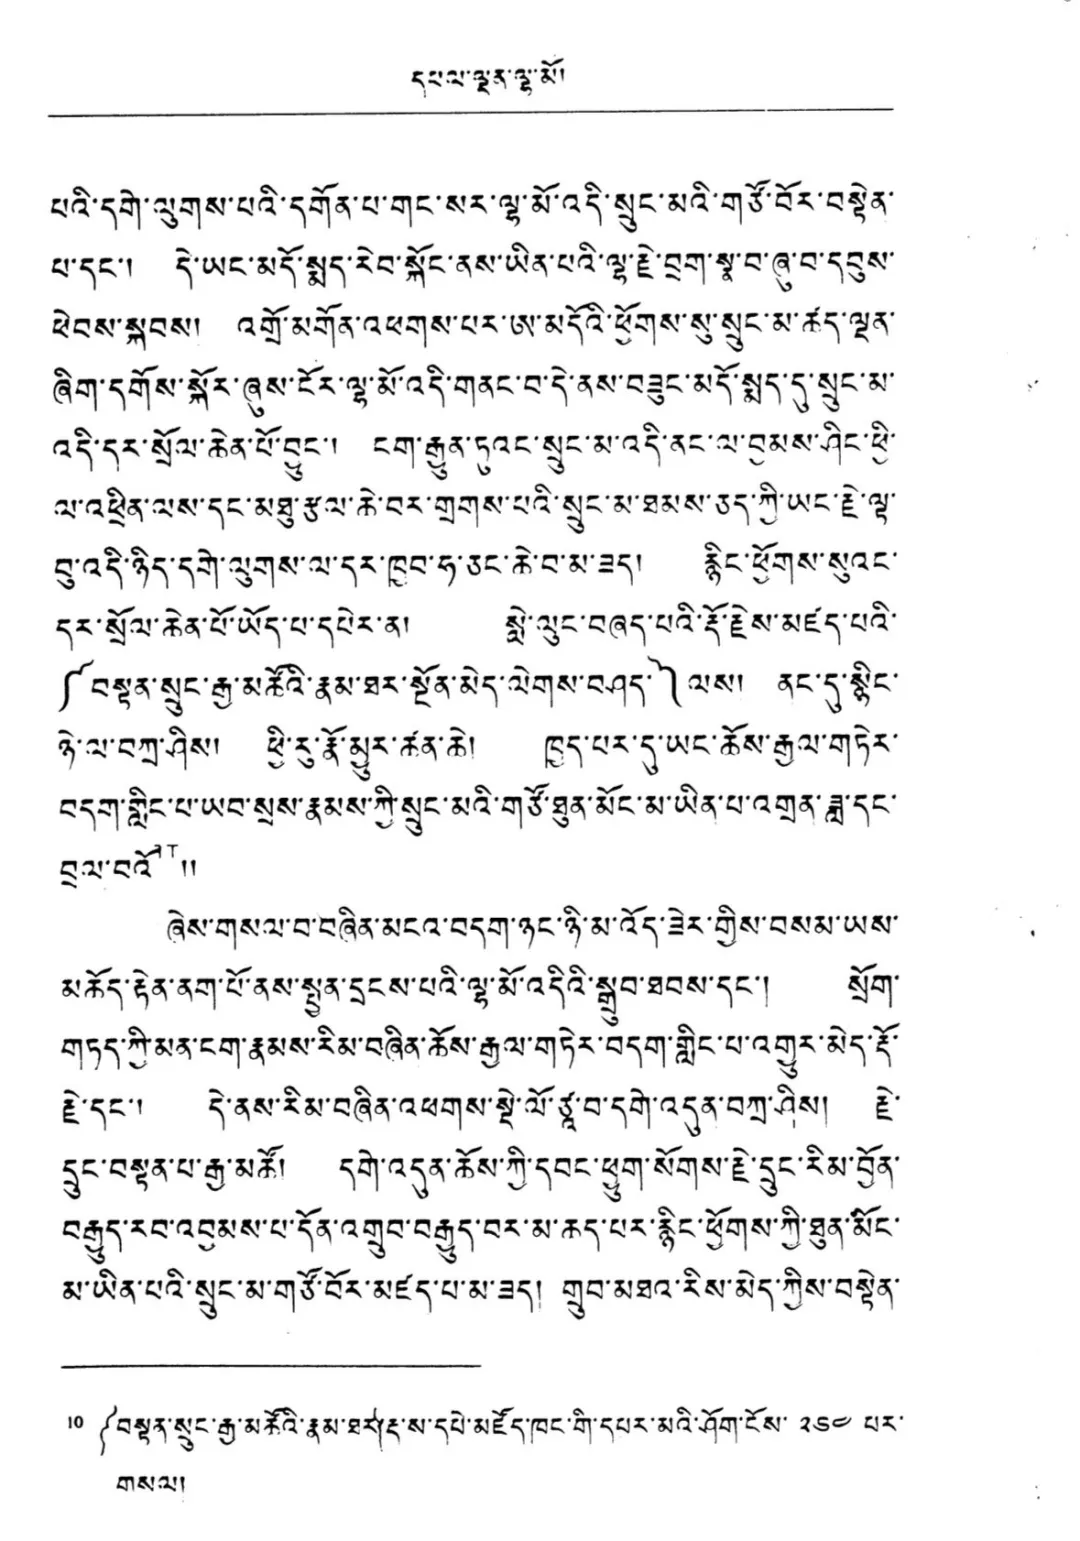 དཔལ་ལྡན་ལྷ་མོ།
པའི་དགེ་ལུགས་པའི་དགོན་པ་གང་སར་ལྷ་མོ་འདི་སྲུང་མའི་གཙོ་བོར་བསྟེན་
པ་དང་། དེ་ཡང་མདོ་སྨད་རེབ་སྐོང་ནས་ཡིན་པའི་ལྷ་རྗེ་བྲག་སྣ་བ་ཞུ་བ་དབུས་
ཕེབས་སྐབས། འགྲོ་མགོན་འཕགས་པར་ཨ་མདོའི་ཕྱོགས་སུ་སྲུང་མ་ཚད་ལྡན་
ཞིག་དགོས་སྐོར་ཞུས་ངོར་ལྷ་མོ་འདི་གནང་བ་དེ་ནས་བཟུང་མདོ་སྨད་དུ་སྲུང་མ་
འདི་དར་སྲོལ་ཆེན་པོ་བྱུང་། ངག་རྒྱུན་ཏུའང་སྲུང་མ་འདི་ནང་ལ་བྱམས་ཤིང་ཕྱི་
ལ་འཕྲིན་ལས་དང་མཐུ་རྩལ་ཆེ་བར་གྲགས་པའི་སྲུང་མ་ཐམས་ཅད་ཀྱི་ཡང་རྗེ་ལྟ་
བུ་འདི་ཉིད་དགེ་ལུགས་ལ་དར་ཁྱབ་ཧ་ཅང་ཆེ་བ་མ་ཟད། རྙིང་ཕྱོགས་སུའང་
དར་སྲོལ་ཆེན་པོ་ཡོད་པ་དཔེར་ན། སླེ་ལུང་བཞད་པའི་རྡོ་རྗེས་མཛད་པའི་
༼བསྟན་སྲུང་རྒྱ་མཚོའི་རྣམ་ཐར་སྔོན་མེད་ལེགས་བཤད་༽ལས། ནང་དུ་སྙིང་
ཉེ་ལ་བཀྲ་ཤིས། ཕྱི་རུ་རྣོ་མྱུར་ཚན་ཆེ། ཁྱད་པར་དུ་ཡང་ཆོས་རྒྱལ་གཏེར་
བདག་གླིང་པ་ཡབ་སྲས་རྣམས་ཀྱི་སྲུང་མའི་གཙོ་ཐུན་མོང་མ་ཡིན་པ་འགྲན་ཟླ་དང་
བྲལ་བའོ།།
ཞེས་གསལ་བ་བཞིན་མངའ་བདག་ཉང་ཉི་མ་འོད་ཟེར་གྱིས་བསམ་ཡས་
མཆོད་རྟེན་ནག་པོ་ནས་སྤྱན་དྲངས་པའི་ལྷ་མོ་འདིའི་སྒྲུབ་ཐབས་དང་། སྲོག་
གཏད་ཀྱི་མན་ངག་རྣམས་རིམ་བཞིན་ཆོས་རྒྱལ་གཏེར་བདག་གླིང་པ་འགྱུར་མེད་རྡོ་
རྗེ་དང་། དེ་ནས་རིམ་བཞིན་འཕགས་སྡེ་ལོ་ཙཱ་བ་དགེ་འདུན་བཀྲ་ཤིས། རྗེ་
དྲུང་བསྟན་པ་རྒྱ་མཚོ། དགེ་འདུན་ཆོས་ཀྱི་དབང་ཕྱུག་སོགས་རྗེ་དྲུང་རིམ་བྱོན་
བརྒྱུད་རབ་འབྱམས་པ་དོན་འགྲུབ་བརྒྱུད་བར་མ་ཆད་པར་རྙིང་ཕྱོགས་ཀྱི་ཐུན་མོང་
མ་ཡིན་པའི་སྲུང་མ་གཙོ་བོར་མཛད་པ་མ་ཟད། གྲུབ་མཐའ་རིས་མེད་ཀྱིས་བསྟེན་
10 ༼བསྟན་སྲུང་རྒྱ་མཚོའི་རྣམ་ཐར༽རྡ་ས་དཔེ་མཛོད་ཁང་གི་དཔར་མའི་ཤོག་ངོས་ ༢༦༧ པར་
གསལ།